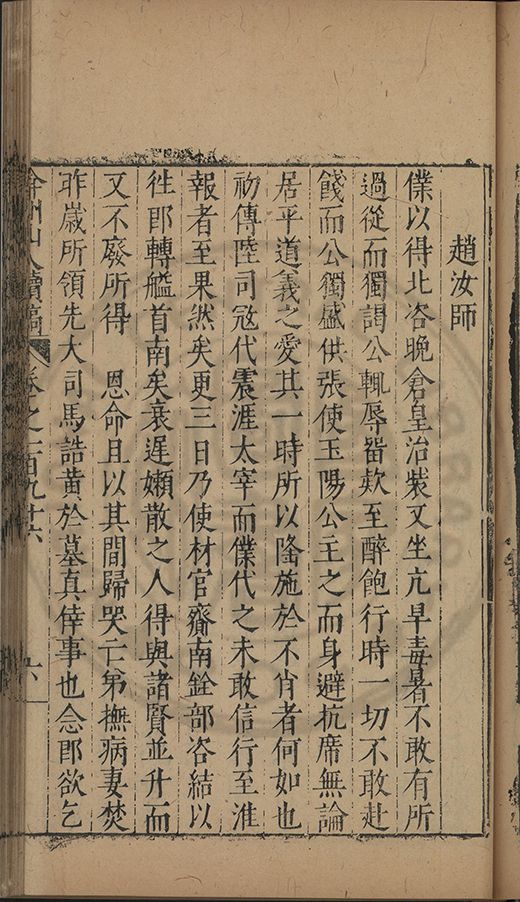 趙汝師
僕以得北咨晚倉皇治裝又坐亢旱毒暑不敢有所
過從而獨謁公輒辱畱欵至醉飽行時一切不敢赴
餞而公獨盛供張使玉陽公主之而身避抗席無論
居平道義之愛其一時所以隆施於不肖者何如也
初傳陸司冦代震涯太宰而僕代之未敢信行至淮
報者至果然矣更三日乃使材官齎南銓部咨結以
徃即轉艦首南矣衰遲嬾散之人得與諸賢並升而
又不廢所得　恩命且以其間歸哭亡弟撫病妻焚
昨歲所領先大司馬誥黃於墓真倖事也念即欲乞
弇州山人續稿　卷之一百九十六　六